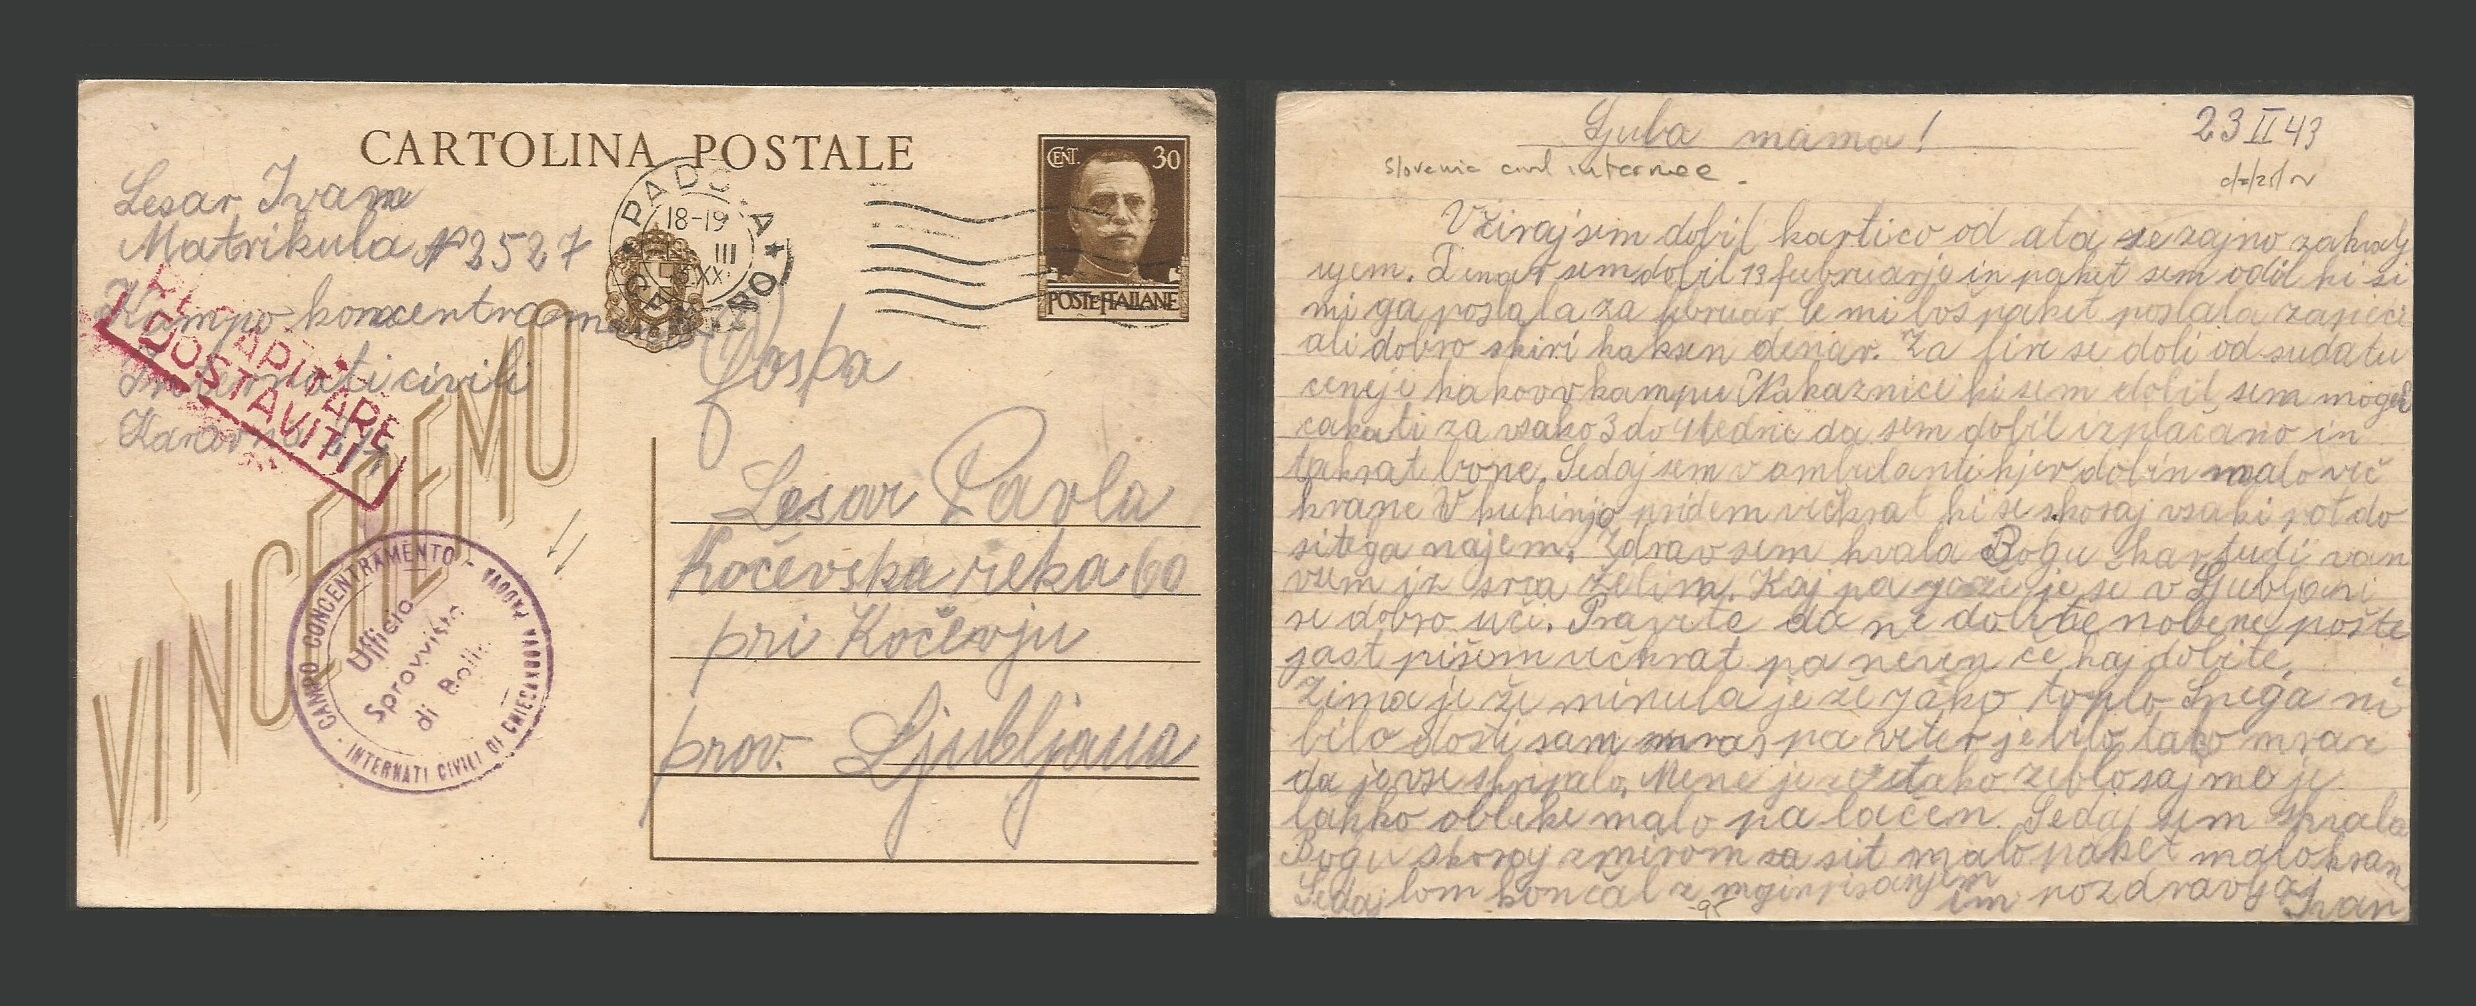 CARTOLINA POSTALE
CENT. 30
POSTE ITALIANE
Lesar Ivan
Matrikula No 2527
Kampo koncentramento
Internati civili
RECAPITARE
DOSTAVITI
VINCEREMO
PADOVA
18-19
III
XXI
CAMPO CONCENTRAMENTO - INTERNATI CIVILI DI CHIESANUOVA PADOVA
Ufficio
Sprovvisto
di Bolli
Gospa
Lesar Pavla
Kočevska reka 60
pri Kočevju
prov. Ljubljana
Ljuba mama!
23 II 43
Slovenia civil internee
Včiraj sem dobil kartico od ata se zajno zahvalj
ujem. Denar sem dobil 13 februarja in paket sem dobil ki si
mi ga poslala za februar če mi boš paket poslala zapeci
ali dobro skiri kaksen denar. Za lire se dobi od sudatu
ceneji kakor v kampu Nakaznice ki sem dobil sem mogel
cakati za vsako 3 do 4 tednie da sem dobil izplačano in
takrat bone. Sedaj sem v ambulanti kjer dobin malo več
hrane V kuhinjo pridem večkrat ki se skoraj vsaki pot do
sitega najem. Zdrav sem hvala Bogu kar tudi van
vsem iz srca želim. Kaj pa je se v Ljubljani
se dobro uči. Pravite da ne dobite nobene pošte
jast pišem večkrat pa neven če kaj dobite.
Zima je že minula je že jako toplo Snega ni
bilo dosti sam mraz pa veter je bilo tako mraz
da je vse skripalo. Mene je tako zeblo saj me je
lahko obleke malo pa lačen. Sedaj sem hvala
Bogu skoraj zmirom sit malo paket malo hran
Sedaj bom končal z mojin pisanjem
in pozdravlja
Ivan